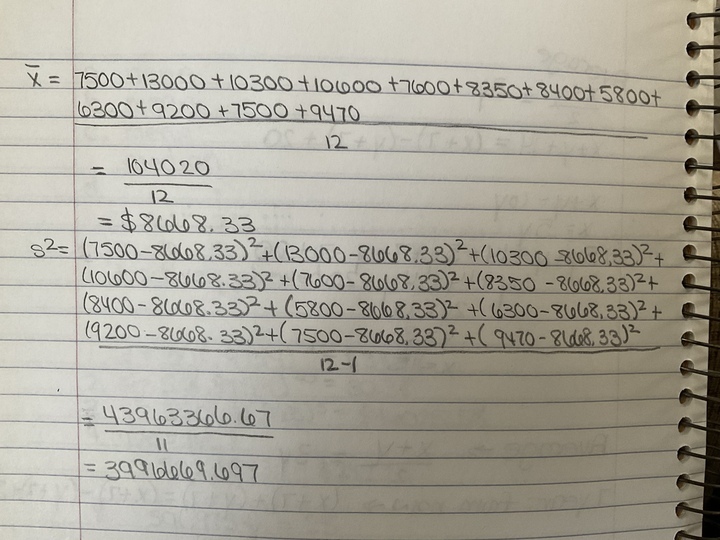 x̄ = 7500+13000+10300+10600+7600+8350+8400+5800+
6300+9200+7500+9470
12
= 104020
12
= $8668.33
s²= (7500-8668.33)²+(13000-8668.33)²+(10300-8668.33)²+
(10600-8668.33)²+(7600-8668.33)²+(8350-8668.33)²+
(8400-8668.33)²+(5800-8668.33)²+(6300-8668.33)²+
(9200-8668.33)²+(7500-8668.33)²+(9470-8668.33)²
12-1
= 43963366.67
11
= 3996669.697